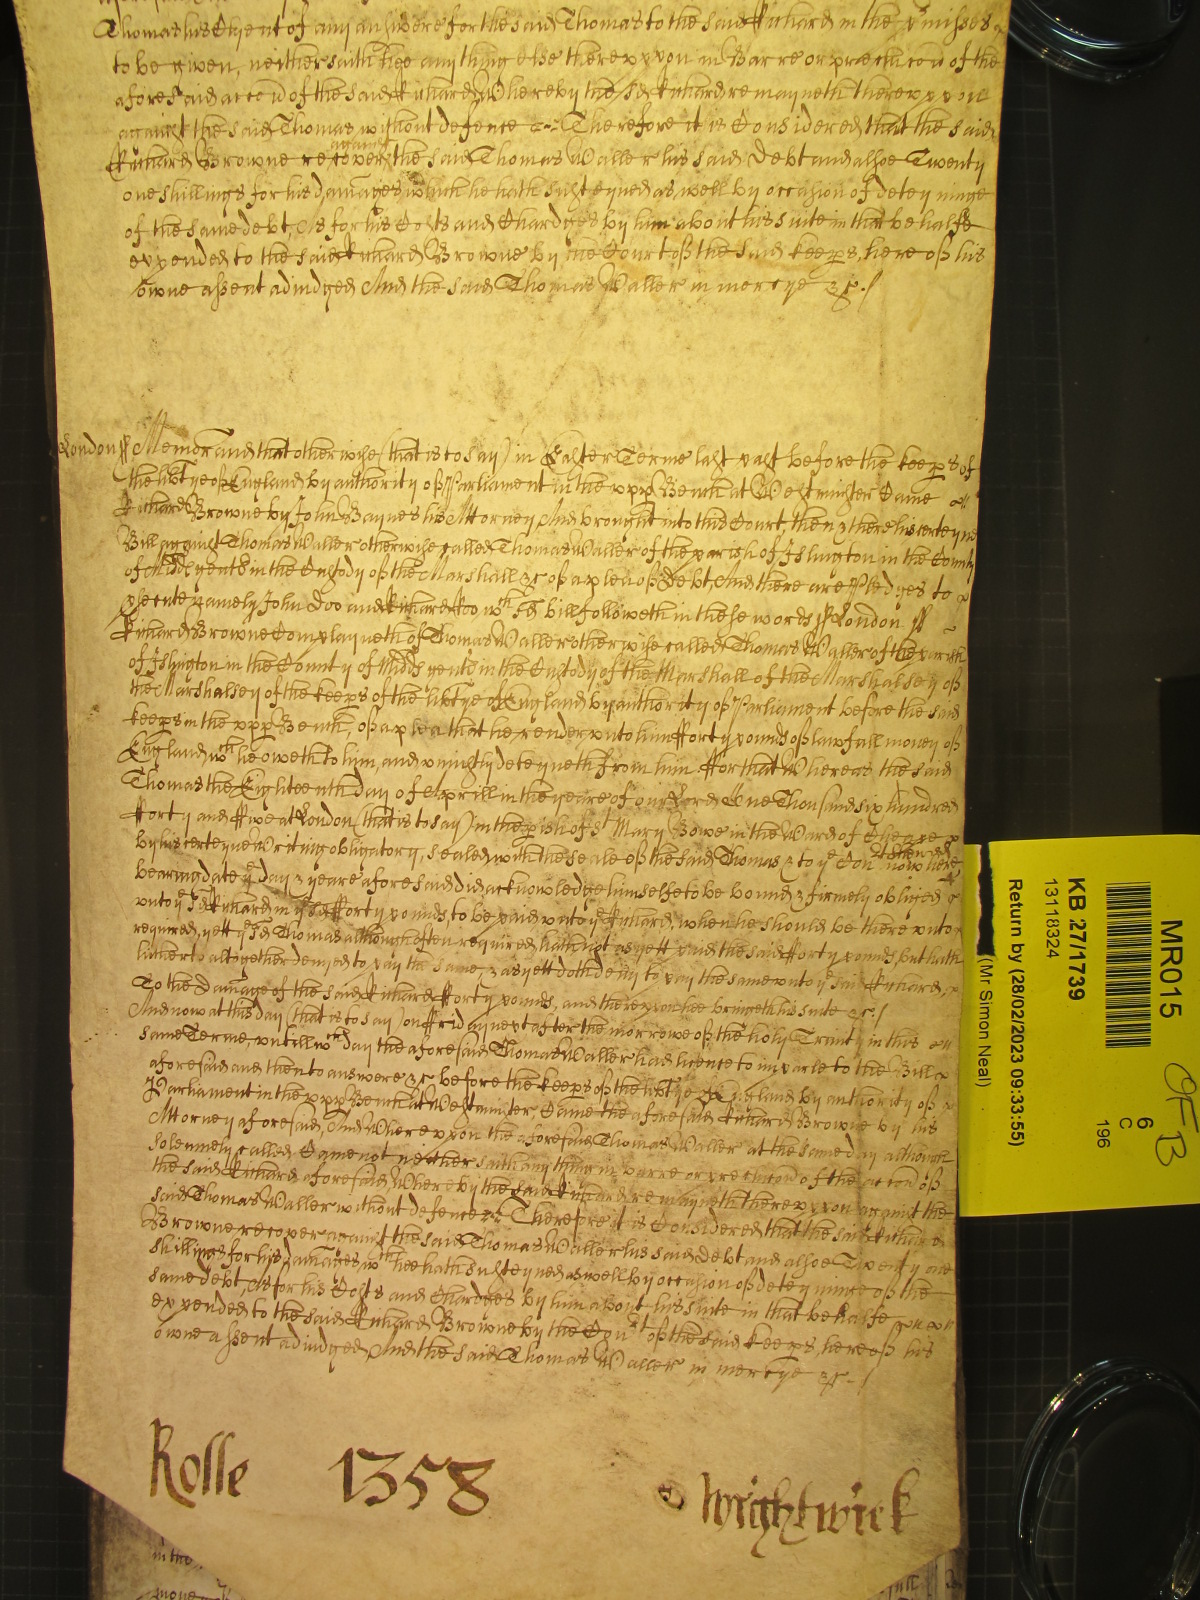 Thomas his Client of any answere for the said Thomas to the said Richard in the p'misses
to be given, neither saith hee any thing else thereuppon in Barre or preclucon of the
aforesaid accon of the said Richard Whereby the sd Richard remayneth thereuppon
against the said Thomas without defence Therefore it is Considered that the said
Richard Browne recover against the said Thomas Waller his said Debt and alsoe Twenty
one shillings for his damages which he hath susteyned as well by occasion of deteyninge
of the same debt, As for his Costs and Chardges by him about his suite in that behalfe
expended to the said Richard Browne by the Court of the said keeps, here of his
owne assent adiudged And the said Thomas Waller in mercye &c./
London ss Memorand that otherwise (that is to say) in Easter Terme last past before the keeps of
the libtye of England by authority of Parliament in the upp Bench at Westminster Came
Richard Browne by John Baynes his Attorney And brought into this Court then & there his certeyne
Bill against Thomas Waller otherwise called Thomas Waller of the parish of Islington in the County
of Midd gent in the Custody of the Marshall &c of a plea of Debt, And there are Pledges to
psecute namely John Doo and Richard Roo wch sd bill followeth in these words ss London ss
Richard Browne Complayneth of Thomas Waller otherwise called Thomas Waller of the parish
of Islington in the County of Midd gent in the Custody of the Marshall of the Marshalsey of
the Marshalsey of the keeps of the libtye of England by authority of Parliament before the said
keeps in the upp Bench, of a plea that he render unto him fforty pounds of lawfull money of
England wch he oweth to him, and uniustly deteyneth from him ffor that Whereas the said
Thomas the Eighteenth day of Aprill in the yeare of our Lord One Thousand six hundred
fforty and ffive at London (that is to say) in the pish of St Mary Bowe in the Ward of Cheape
by his certeyne Writing obligatory, sealed with the seale of the said Thomas & to ye Court now here shewed
bearing date ye day & yeare aforesaid did acknowledge himselfe to be bound & firmely obliged
unto ye sd Richard in ye sd fforty pounds to be paid unto ye Richard, when he should be there unto
required, yett ye sd Thomas although often required hath not as yett paid the said fforty pounds but hath
hitherto altogether denyed to pay the same, & as yett doth deny to pay the same unto ye said Richard,
To the Damage of the said Richard fforty pounds, and thereupon hee bringeth his suite &c./
And now at this day (that is to say) on ffriday next after the morrowe of the holy Trinity in this
same Terme, untill wch day the aforesaid Thomas Waller had licence to imparle to the Bill
aforesaid and then to answere &c before the keeps of the libtye of England by authority of
Parliament in the upp Bench at Westminster, Came the aforesaid Richard Browne by his
Attorney aforesaid, And Whereupon the aforesaid Thomas Waller at the same day although
solemnely called Came not neither saith any thing in barre or preclucon of the accon of
the said Richard aforesaid Whereby the said Richard remayneth thereuppon against the
said Thomas Waller without defence Therefore it is Considered that the said Richard
Browne recover against the said Thomas Waller his said debt and alsoe Twenty one
shillings for his damages wch hee hath susteyned as well by occasion of deteyninge of the
same debt, As for his Costs and Chardges by him about his suite in that behalfe
expended to the said Richard Browne by the Court of the said keeps, here of his
owne assent adiudged, And the said Thomas Waller in mercye &c./
Rolle 1358 Wightwick
MR015
KB 27/1739
13118324
Return by (28/02/2023 09:33:55)
(Mr Simon Neal)
6
C
196
OFB